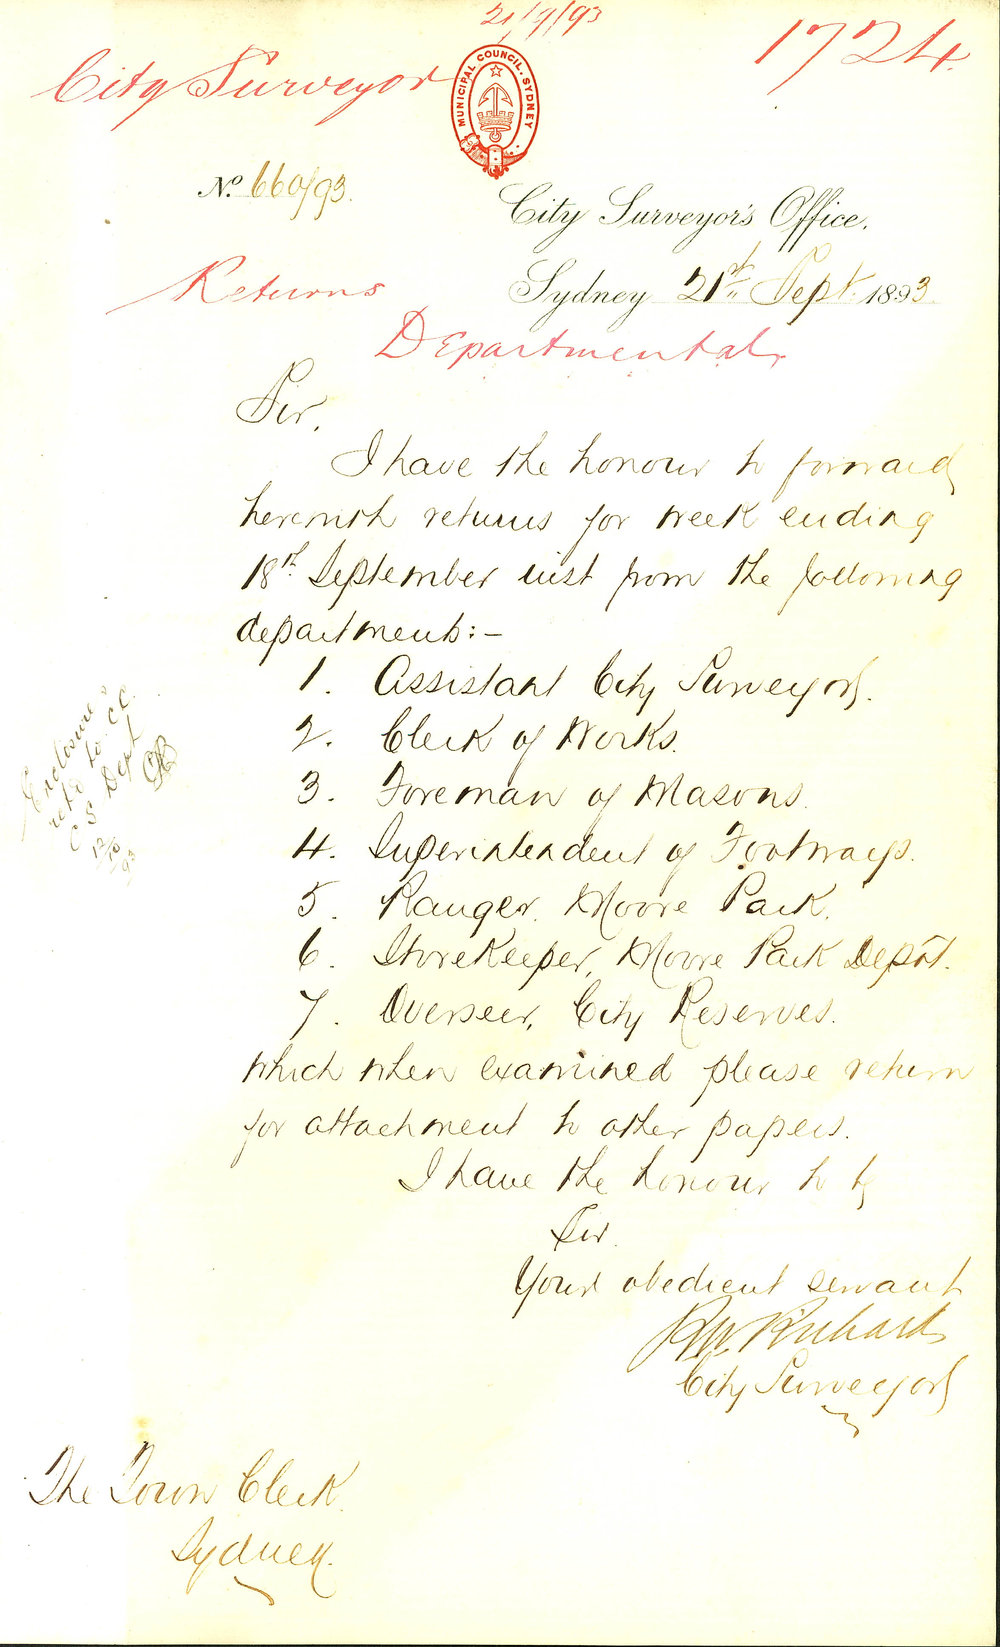 21/9/93
1724
City Surveyor
MUNICIPAL COUNCIL. SYDNEY
No. 660/93.
City Surveyor's Office.
Returns
Sydney 21st Sept. 1893
Departmental
Sir,
I have the honour to forward
herewith returns for week ending
18th September inst from the following
departments:-
1. Assistant City Surveyor.
2. Clerk of Works.
3. Foreman of Masons.
4. Superintendent of Footways.
5. Ranger, Moore Park.
6. Storekeeper, Moore Park Depôt.
7. Overseer, City Reserves.
which when examined please return
for attachment to other papers.
I have the honour to be
Sir.
Your obedient servant
R W Richards
City Surveyor
Enclosure
retd to CC.
C S Dept
12/10/93
The Town Clerk.
Sydney.